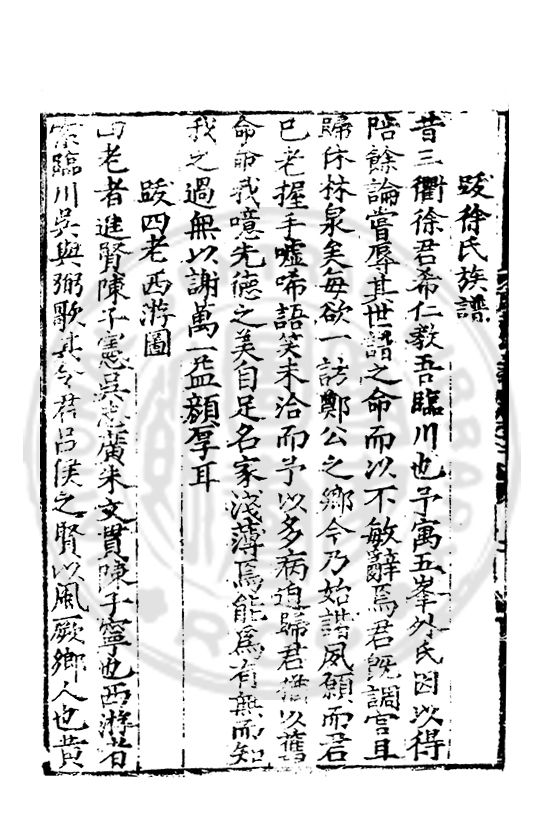 跋徐氏族譜
昔三衢徐君希仁教吾臨川也予寓五峯外氏因以得
陪餘論嘗辱其世譜之命而以不敏辭焉君既調官且
歸休林泉矣每欲一訪鄭公之鄉今乃始諧夙願而君
已老握手噓唏語笑未洽而予以多病迫歸君猶以舊
命命我噫先德之美自足名家淺薄焉能爲有無而知
我之過無以謝萬一益顏厚耳
跋四老西游圖
四老者進賢陳子憲吳志廣朱文貫陳子寧也西游者
臨川吳與弼歌其令君呂侯之賢以風厥鄉人也黄